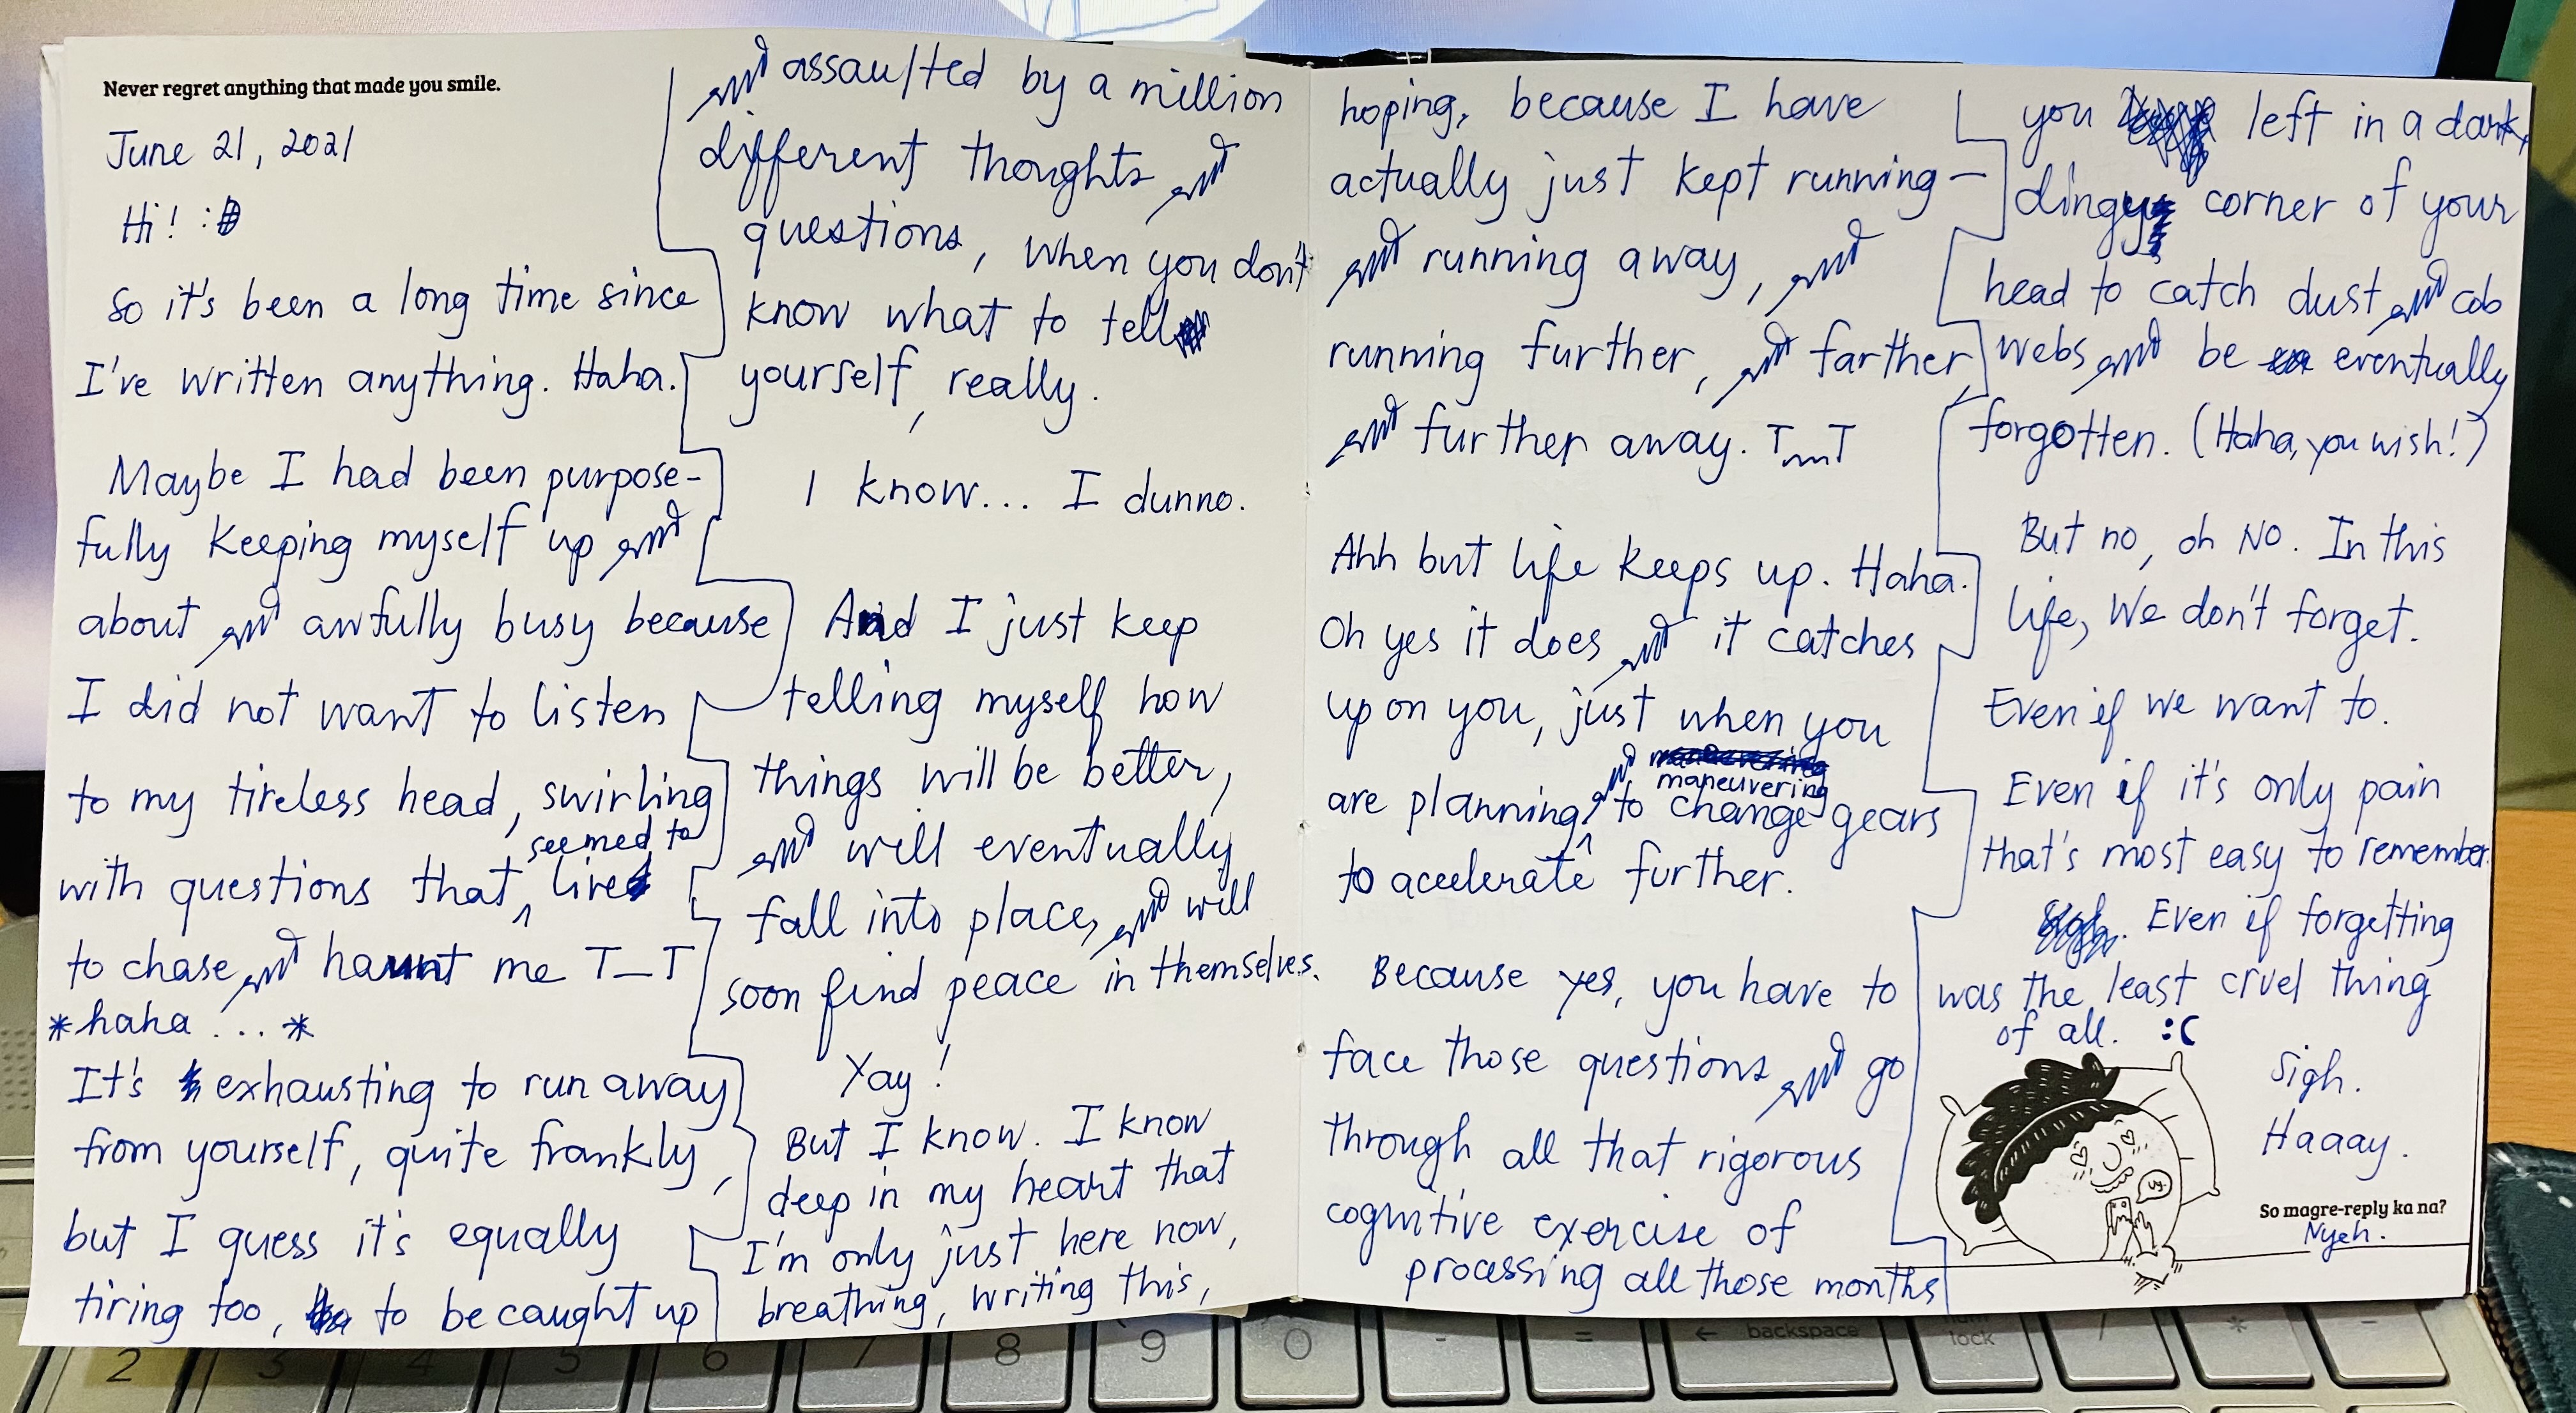 Never regret anything that made you smile.
June 21, 2021
Hi! :D
So it's been a long time since
I've written anything. Haha.
Maybe I had been purpose-
fully keeping myself up and
about and awfully busy because
I did not want to listen
to my tireless head, swirling
with questions that seemed to live
to chase and haunt me T_T
*haha ... *
It's exhausting to run away
from yourself, quite frankly,
but I guess it's equally
tiring too, to be caught up
and assaulted by a million
different thoughts and
questions, when you don't
know what to tell
yourself, really.
I know... I dunno.
And I just keep
telling myself how
things will be better,
and will eventually
fall into place, and will
soon find peace in themselves.
Yay!
But I know. I know
deep in my heart that
I'm only just here now,
breathing, writing this,
hoping, because I have
actually just kept running—
and running away, and
running further, and farther,
and further away. T__T
Ahh but life keeps up. Haha.
Oh yes it does and it catches
up on you, just when you
are planning, and maneuvering to change gears
to accelerate further.
Because yes, you have to
face those questions and go
through all that rigorous
cognitive exercise of
processing all those months
you left in a dark,
dingy corner of your
head to catch dust and cob
webs and be eventually
forgotten. (Haha, you wish!)
But no, oh No. In this
life, We don't forget.
Even if we want to.
Even if it's only pain
that's most easy to remember.
Even if forgetting
was the least cruel thing
of all. :(
Sigh.
Haaay.
So magre-reply ka na?
Nyeh.
2 3 4 5 6 7 8 9 0 - = ← backspace num lock / * -